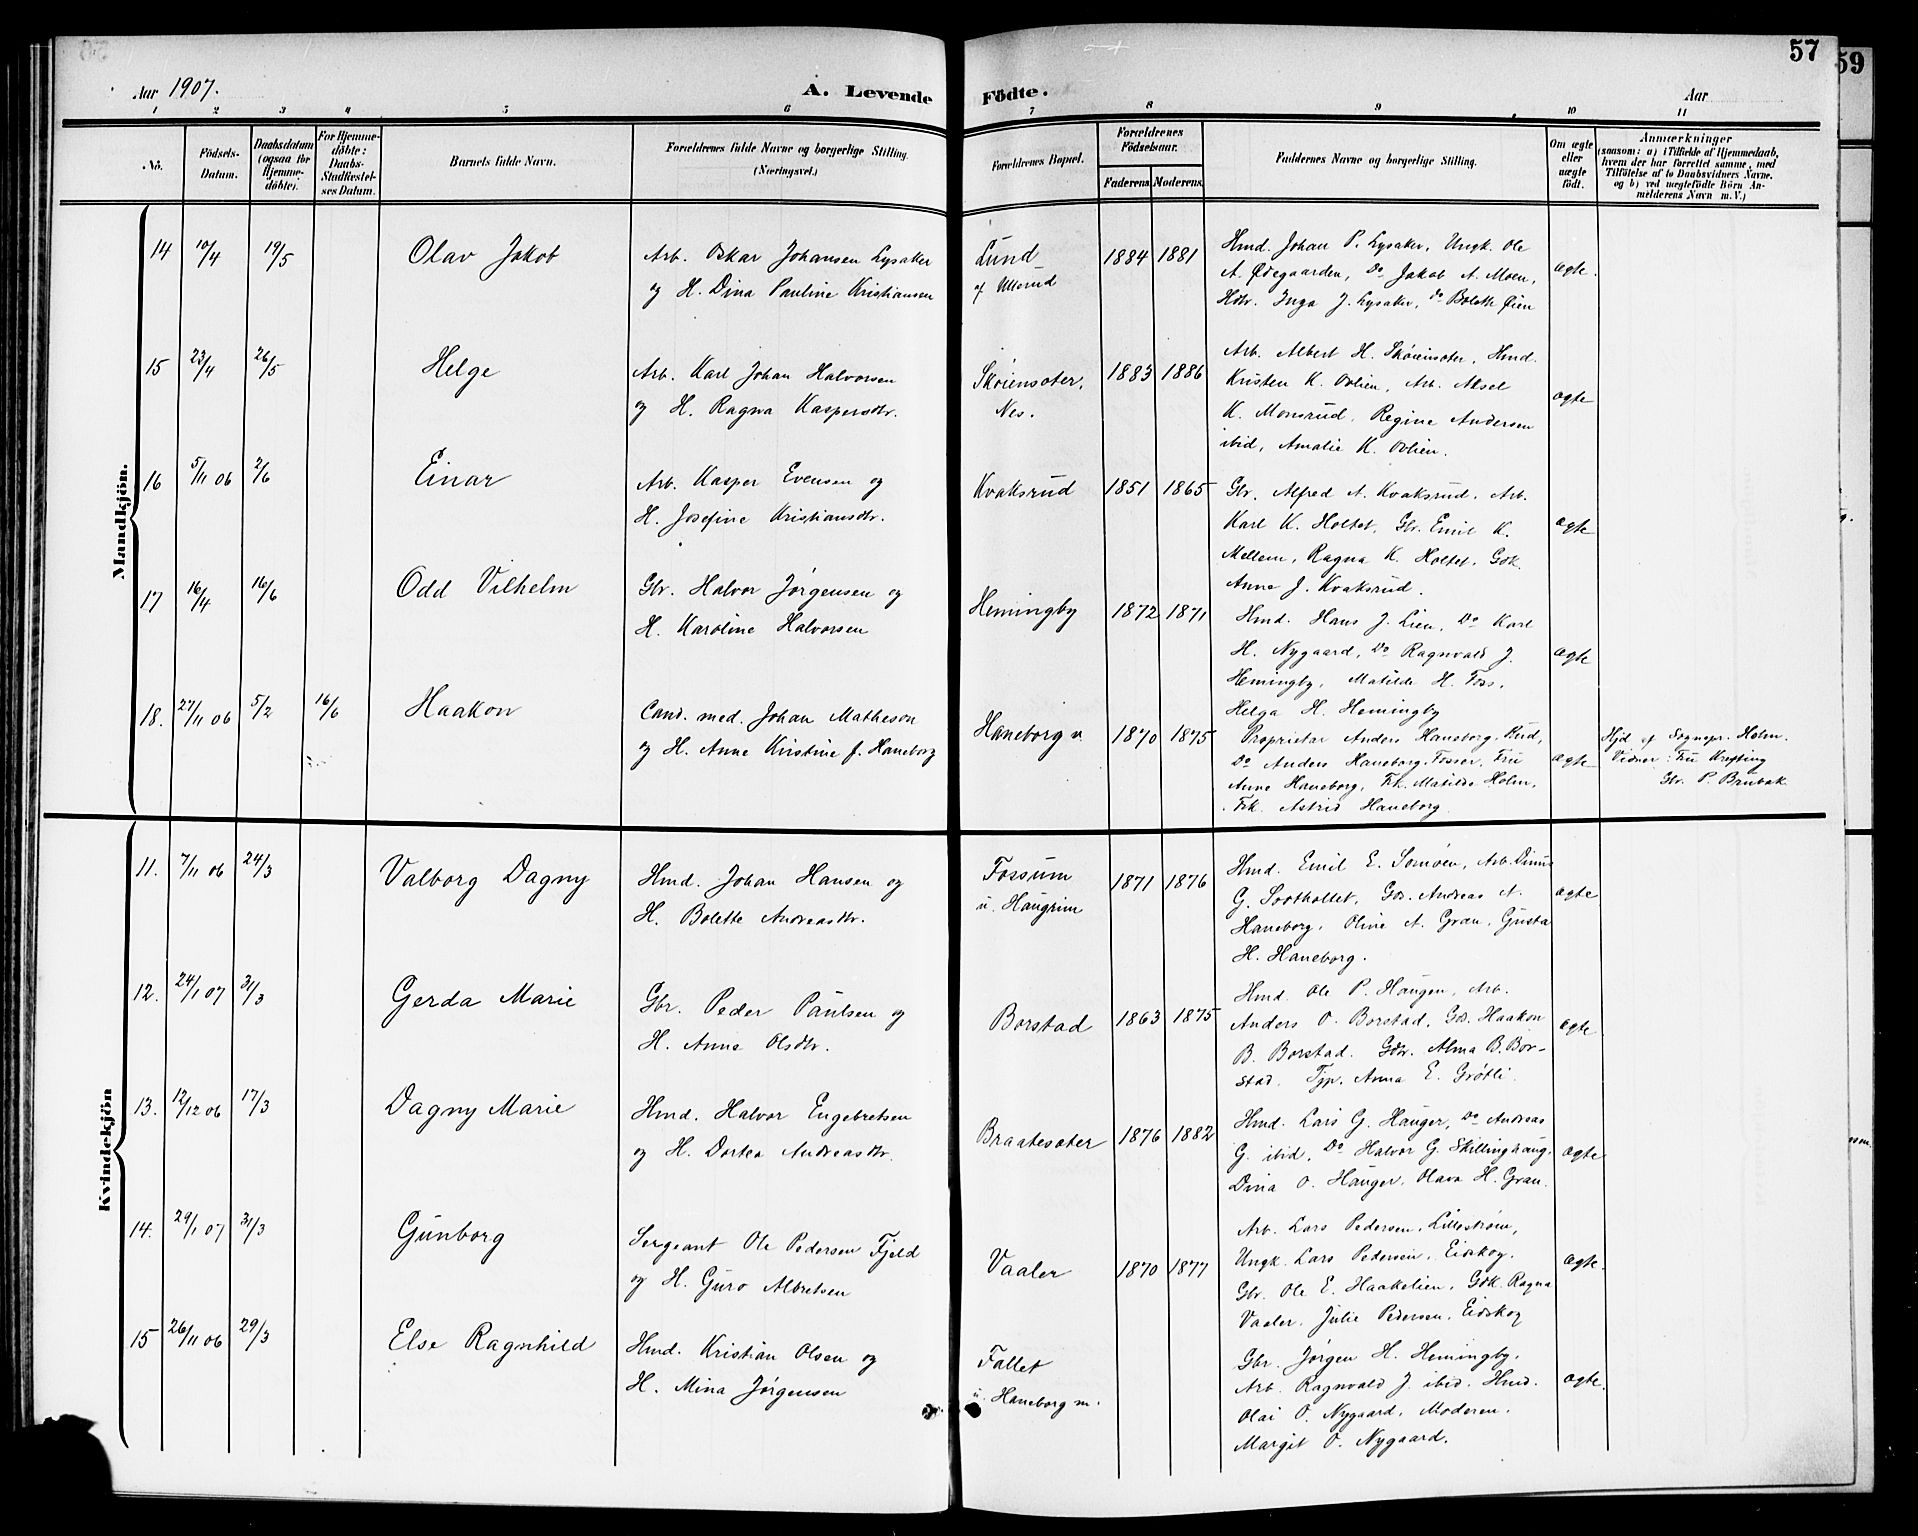 57
59
Aar 1907.
A. Levende Födte.
Aar
1 2 3 4 5 6 7 8 9 10 11
No.
Födsels-Datum.
Daabsdatum (ogsaa for Hjemme-döbte).
For Hjemme-döbte: Daabs-Stadfæstel-ses Datum.
Barnets fulde Navn.
Forældrenes fulde Navne og borgerlige Stilling.
(Næringsvei.)
Forældrenes Bopæl.
Forældrenes Födselsaar.
Faderens. Moderens.
Faddernes Navne og borgerlige Stilling.
Om ægte eller uægte födt.
Anmærkninger
(saasom: a) i Tilfælde af Hjemmedaab,
hvem der har forrettet samme, med
Tilföielse af to Daabsvidners Navne,
og b) ved uægtefödte Börn An-
melderens Navn m. V.)
Mandkjön.
14 10/4 19/5 Olav Jakob
Arb. Oskar Johansen Lysaker
og H. Dina Pauline Kristiansen
Lund
af Ullerud
1884 1881
Hmd. Johan P. Lysaker, Ungk. Ole
A. Ødegaarden, Do Jakob A. Moen,
Hdr. Inga J. Lysaker, do Bolette Øien
ægte.
15 23/4 26/5 Helge
Arb. Karl Johan Halvorsen
og H. Ragna Kaspersdtr.
Skøiensæter,
Nes.
1883 1886
Arb. Albert H. Skøiensæter, Hmd.
Kristen K. Ovlien, Arb. Aksel
K. Monsrud, Regine Andersen
ibid, Amalie K. Ovlien.
ægte
16 5/11 06 2/6 Einar
Arb. Kasper Evensen og
H. Josefine Kristiansdtr.
Kvaksrud
1851 1865
Gbr. Alfred A. Kvaksrud, Arb.
Karl K. Holtet, Gbr. Emil K.
Mellem, Ragna K. Holtet, Gdk.
Anne J. Kvaksrud.
ægte
17 16/4 16/6 Odd Vilhelm
Gbr. Halvor Jørgensen og
H. Karoline Halvorsen
Hemingby
1872 1871
Hmd. Hans J. Lien, Do Karl
H. Nygaard, Do Ragnvald J.
Hemingby, Matilde H. Foss,
Helga H. Hemingby
ægte
18. 27/11 06 5/2 16/6 Haakon
Cand. med. Johan Matheson
og H. Anne Kristine f. Haneborg
Haneborg n.
1870 1875
Proprietær Anders Haneborg-Rud,
Do Anders Haneborg-Fosser, Fru
Anne Haneborg, Frk. Matilde Holm,
Frk. Astrid Haneborg.
ægte
Hjd af Sognepr. Holm.
Vidner: Fru Krefting
Gbr. P. Brubak
Kvindekjön
11. 7/11 06 24/3 Valborg Dagny
Hmd. Johan Hansen og
H. Bolette Andreasdtr.
Fossum
u. Haugrim
1871 1876
Hmd. Emil E. Somoen, Arb.
G. Sootholtet, Gds. Andreas A.
Haneborg, Oline A. Gran, Gusta
H. Haneborg.
ægte
12. 24/1 07 31/3 Gerda Marie
Gbr. Peder Paulsen og
H. Anne Olsdtr.
Borstad
1863 1875
Hmd. Ole P. Haugen, Arb.
Anders O. Borstad, Gds. Haakon
B. Borstad. Gdr. Alma B. Bor-
stad, Tjp. Anna E. Grøtli.
ægte
13. 12/12 06 17/3 Dagny Marie
Hmd. Halvor Engebretsen
og H. Dortea Andreasdtr.
Braatesæter
1876 1882
Hmd. Lars G. Hauger, Do Andreas
G. ibid, Do Halvor G. Skillinghaug,
Dina O. Hauger, Olava H. Gran.
ægte
14. 29/1 07 31/3 Gunborg
Sergeant Ole Pedersen Fjeld
og H. Guro Albretsen
Vaaler
1870 1877
Arb. Lars Pedersen, Lillestrøm,
Ungk. Lars Pedersen, Eidskog.
Gbr. Ole E. Haakelien, Gdk. Ragna
Vaaler, Julie Pedersen, Eidskog
ægte.
15 26/11 06 29/3 Else Ragnhild
Hmd. Kristian Olsen og
H. Mina Jørgensen
Fallet
u. Haneborg m.
Gbr. Jørgen H. Hemingby,
Arb. Ragnvald J. ibid. Hmd.
Olai O. Nygaard, Moderen.
Margit O. Nygaard.
ægte.